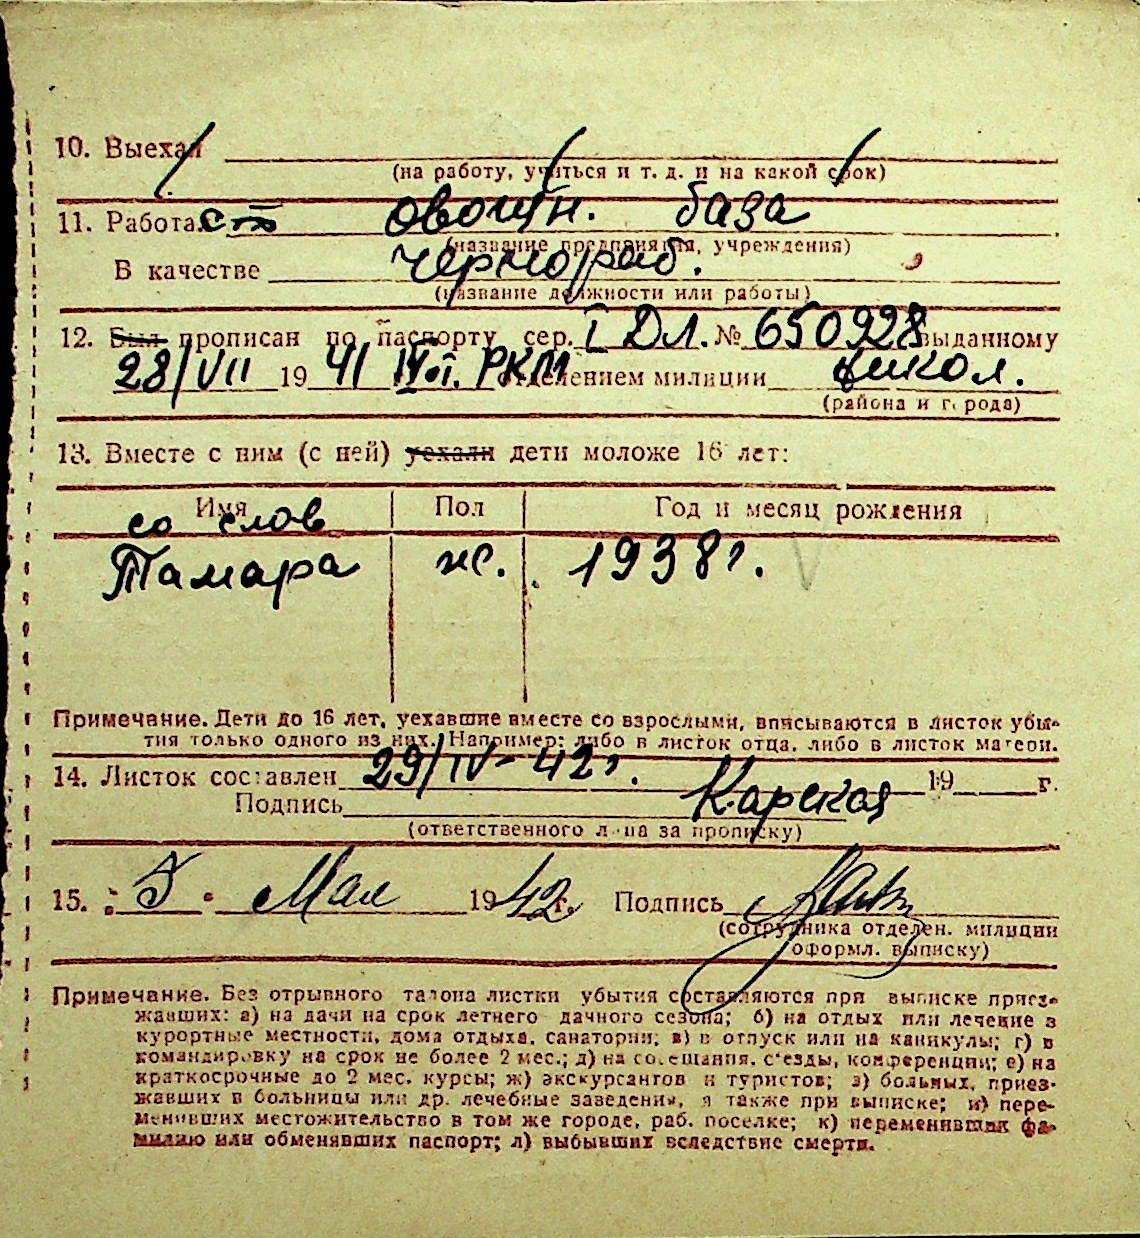 10. Выехал
(на работу, учиться и т. д. и на какой срок)
11. Работа овощн. база
(название предприятия, учреждения)
В качестве чернораб.
(название должности или работы)
12. Был прописан по паспорту сер. I ДЛ. № 650928 выданному
28/VII 19 41 РКМ отделением милиции
(района и города)
13. Вместе с ним (с ней) уехали дети моложе 16 лет:
Имя Пол Год и месяц рождения
со слов
Тамара ж. 1938 г.
Примечание. Дети до 16 лет, уехавшие вместе со взрослыми, вписываются в листок убы-
тия только одного из них. Например: либо в листок отца, либо в листок матери.
14. Листок составлен 29/IV - 42 г. 19 г.
Подпись Карская
(ответственного лица за прописку)
15. 5 Мая 1942 г. Подпись
(сотрудника отделен. милиции
оформл. выписку)
Примечание. Без отрывного талона листки убытия составляются при выписке приез-
жавших: а) на дачи на срок летнего дачного сезона; б) на отдых или лечение в
курортные местности, дома отдыха, санатории; в) в отпуск или на каникулы; г) в
командировку на срок не более 2 мес.; д) на совещания, съезды, конференции; е) на
краткосрочные до 2 мес. курсы; ж) экскурсантов и туристов; з) больных, приез-
жавших в больницы или др. лечебные заведения, а также при выписке; и) пере-
менивших местожительство в том же городе, раб. поселке; к) переменивших фа-
милию или обменявших паспорт; л) выбывших вследствие смерти.